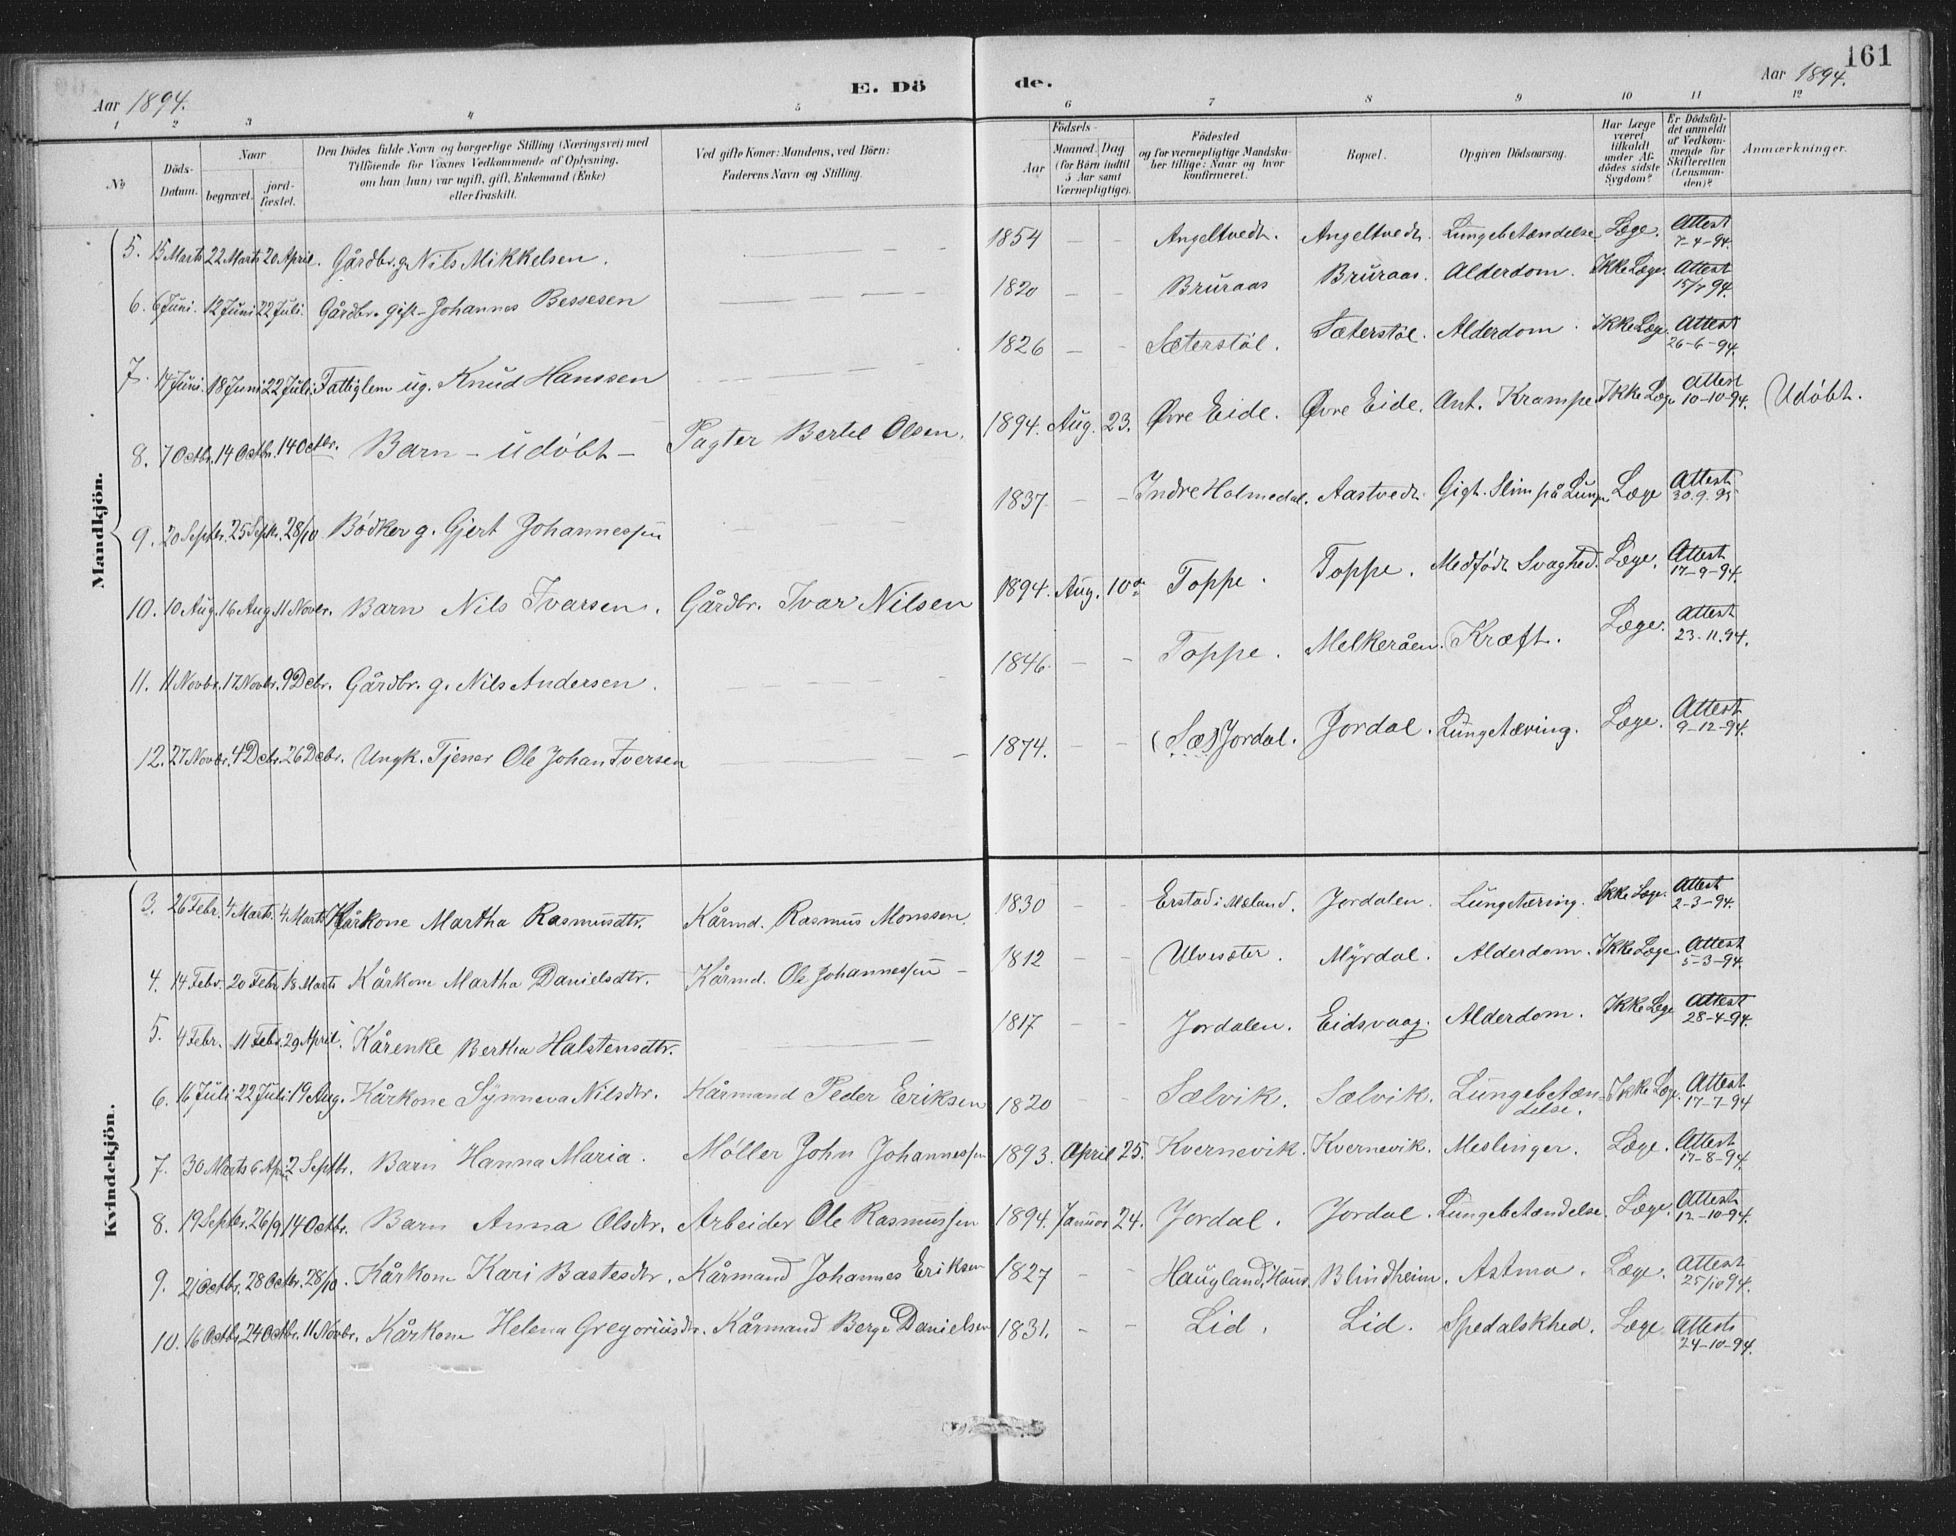 161
Aar 1894.
E. Dö de.
Aar 1894.
1 2 3 4 5 6 7 8 9 10 11 12
No
Döds-Datum.
Naar
begravet.
jord-fæstet.
Den Dödes fulde Navn og borgerlige Stilling (Næringsvei) med
Tilföiende for Voxnes Vedkommende af Oplysning,
om han (hun) var ugift, gift, Enkemand (Enke)
eller fraskilt.
Ved gifte Koner: Mandens, ved Börn:
Faderens Navn og Stilling.
Födsels-
Aar
Maaned. Dag
(for Börn indtil
5 Aar samt
Værnepligtige).
Födested
og for værnepligtige Mandska-
ber tillige: Naar og hvor
konfirmeret.
Bopæl.
Opgiven Dödsaarsag.
Har Læge
været
tilkaldt
under Af-
dödes sidste
Sygdom?
Er Dödsfal-
det anmeldt
af Vedkom-
mende for
Skifteretten
(Lensman-
den)?
Anmærkninger.
Mandkjön.
5. 15 Marts 22 Marts 20 April. Gårdbr. g. Nils Mikkelsen. 1854 Angeltvedt. Angeltvedt. Lungebetændelse Læge. Attest 7-4-94.
6. 6 Juni. 12 Juni 22 Juli. Gårdbr. gift Johannes Bessesen 1820 Bruraas Bruraas. Alderdom. Ikke Læge. Attest 15/7 94.
7. 14 Juni. 18 Juni 22 Juli. Fattiglem ug. Knud Hanssen 1826 Sæterstöl. Sæterstöl. Alderdom. Ikke Læge Attest 26-6-94.
8. 7 Octbr. 14 Octbr. 14 Octbr. Barn - udøbt - Pagter Bertel Olsen. 1894. Aug. 23. Øvre Eide. Øvre Eide. Ant. Krampe Ikke Læge Attest 10-10-94. Udøbt.
9. 20 Septbr. 25 Septbr. 28/10 Bødker g. Gjert Johannessen 1837 Indre Holmedal. Aastvedt. Gigt. Slim på Lunge Læge Attest 30.9.95
10. 10 Aug. 16 Aug 11 Novbr. Barn Nils Ivarsen. Gårdbr. Ivar Nilsen 1894. Aug. 10de Toppe. Toppe. Medfødt Svaghed. Læge. Attest 17-9-94.
11. 11 Novbr. 17 Novbr. 9 Debr. Gårdbr. g. Nils Andersen. 1846. Toppe. Melkeråen. Kræft. Læge. Attest 23-11.94.
12. 27 Novbr. 4 Debr. 26 Debr. Ungk. Tjener Ole Johan Iversen 1874. (Sæ) Jordal. Jordal. Lungetæring. Læge. Attest 9-12-94.
Kvindekjön.
3. 26 Febr. 4 Marts. 4 Marts Kårkone Martha Rasmusdtr. Kårmd. Rasmus Monssen. 1830 Erstad i Mæland. Jordalen. Lungetæring. Ikke Læge. Attest 2-3-94.
4. 14 Febr. 20 Febr. 18 Marts Kårkone Martha Danielsdtr. Kårmd. Ole Johannessen 1812 Ulvesæter. Myrdal. Alderdom. Ikke Læge. Attest 5-3-94.
5. 4 Febr. 11 Febr. 29 April. Kårenke Bertha Halstensdtr. 1817 Jordalen. Eidsvaag. Alderdom. Ikke Læge Attest 28-4-94.
6. 16 Juli 22 Juli 19 Aug. Kårkone Synneva Nilsdtr. Kårmand Peder Eriksen 1820 Sælvik. Sælvik. Lungebetændelse. Ikke Læge. Attest 17-7-94
7. 30 Marts 6 April 2 Septb. Barn Hanna Maria. Møller John Johannessen 1893. April 25. Kvernevik. Kvernevik. Meslinger. Læge. Attest 17-8-94.
8. 19 Septbr. 26/9 14 Octbr. Barn Anna Olsdtr. Arbeider Ole Rasmussen 1894. Januar 24. Jordal. Jordal. Lungebetændelse. Læge. Attest 12-10-94.
9. 21 Octbr. 28 Octbr. 28/10. Kårkone Kari Bastesdtr. Kårmand Johannes Eriksen 1827 Haugland, Haus. Blindheim. Astma. Læge. Attest 25/10 94.
10. 16 Octbr 24 Octbr. 11 Novbr. Kårkone Helena Gregoriusdtr. Kårmand Berge Danielsen 1831. Lid. Lid. Spedalskhed. Læge. Attest 24-10-94.